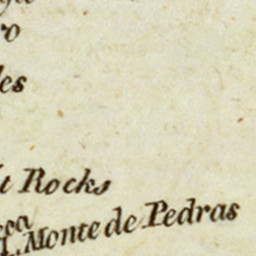 ro
les
t Rocks
cea
L. Monte de Pedras